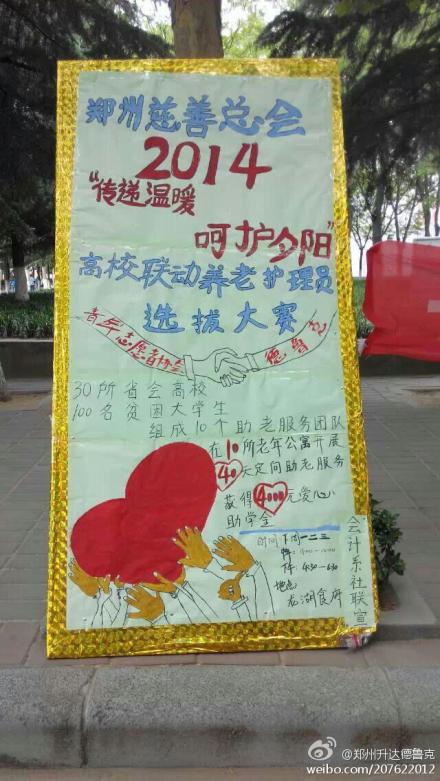 郑州慈善总会
2014
“传递温暖
呵护夕阳”
高校联动养老护理员
选拔大赛
青年志愿者协会
德鲁克
30所省会高校
100名贫困大学生
组成10个助老服务团队
在10所老年公寓开展
40天定向助老服务
获得4000元爱心
助学金
时间：下周一二三
4:30-6:30
地点：
龙湖食府
会计系社联宣
@郑州升达德鲁克
weibo.com/207622012